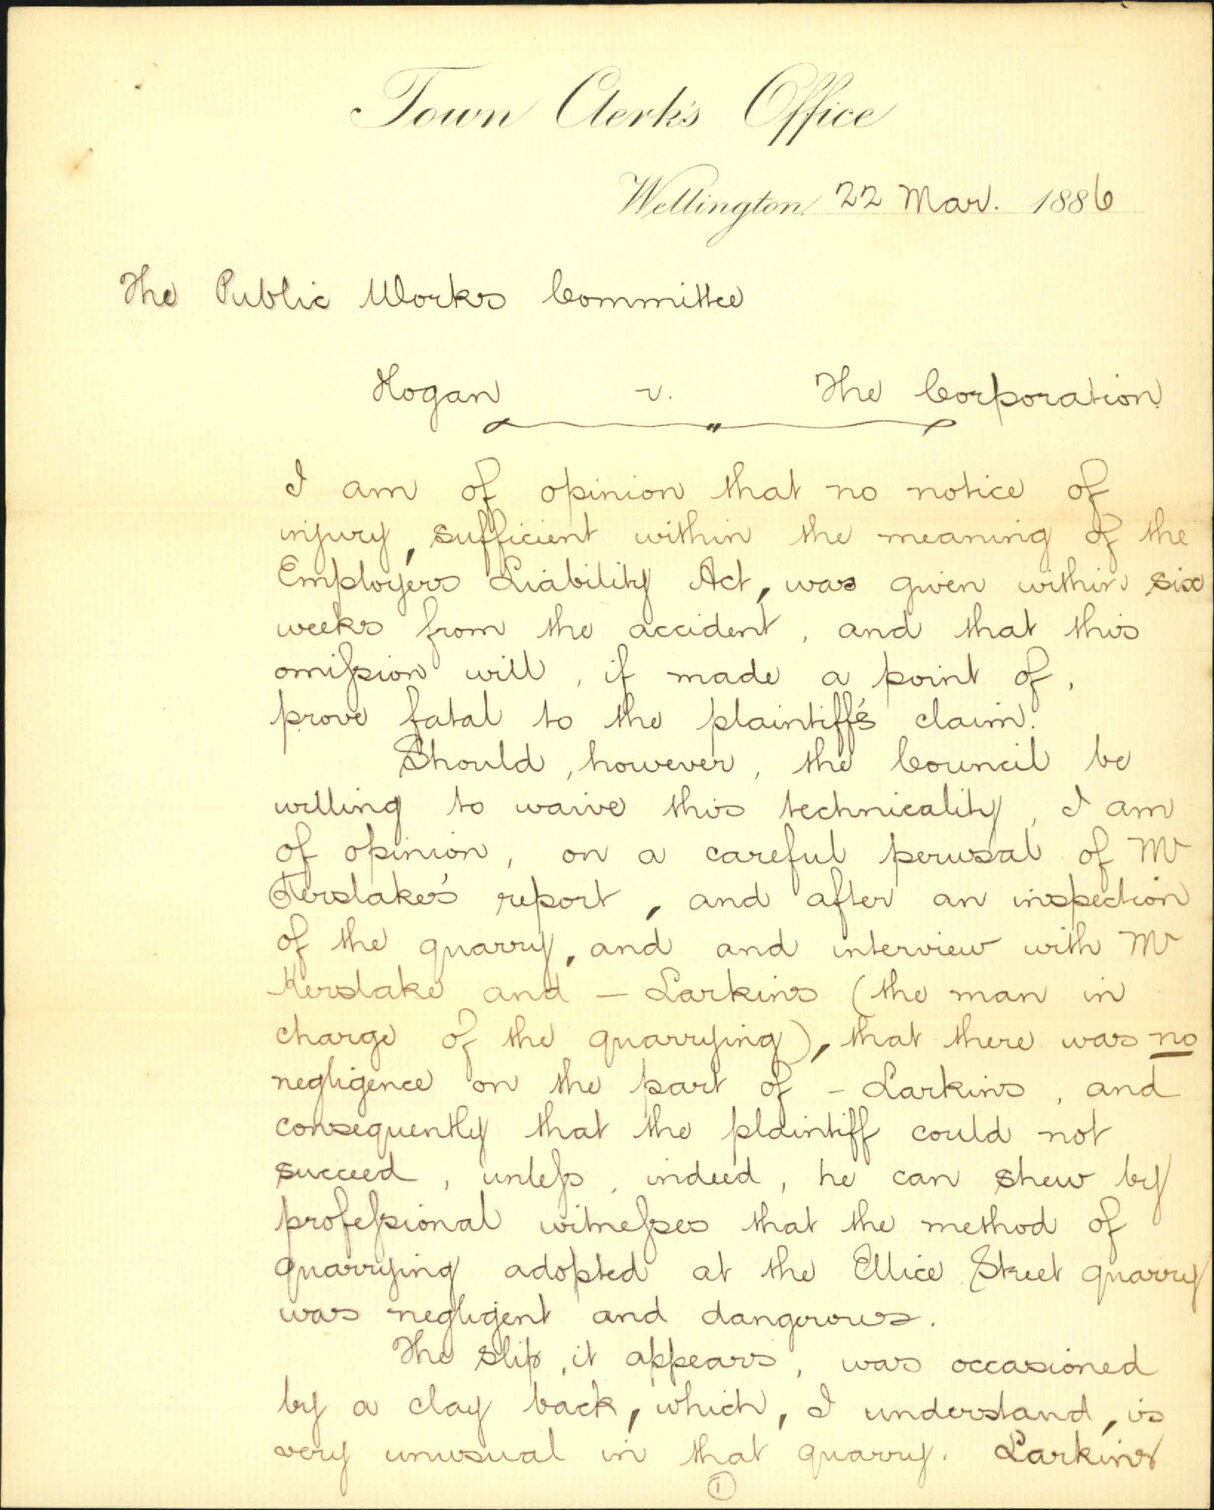 Town Clerk's Office
Wellington, 22 Mar. 1886
The Public Works Committee
Hogan v. The Corporation
I am of opinion that no notice of
injury, sufficient within the meaning of the
Employers Liability Act, was given within six
weeks from the accident, and that this
omission will, if made a point of,
prove fatal to the plaintiff's claim.
Should, however, the Council be
willing to waive this technicality, I am
of opinion, on a careful perusal of Mr
Kerslake's report, and after an inspection
of the quarry, and and interview with Mr
Kerslake and – Larkins (the man in
charge of the quarrying), that there was no
negligence on the part of – Larkins, and
consequently that the plaintiff could not
succeed, unless, indeed, he can shew by
professional witnesses that the method of
quarrying adopted at the Ellice Street quarry
was negligent and dangerous.
The slip, it appears, was occasioned
by a clay back, which, I understand, is
very unusual in that quarry. Larkins
1